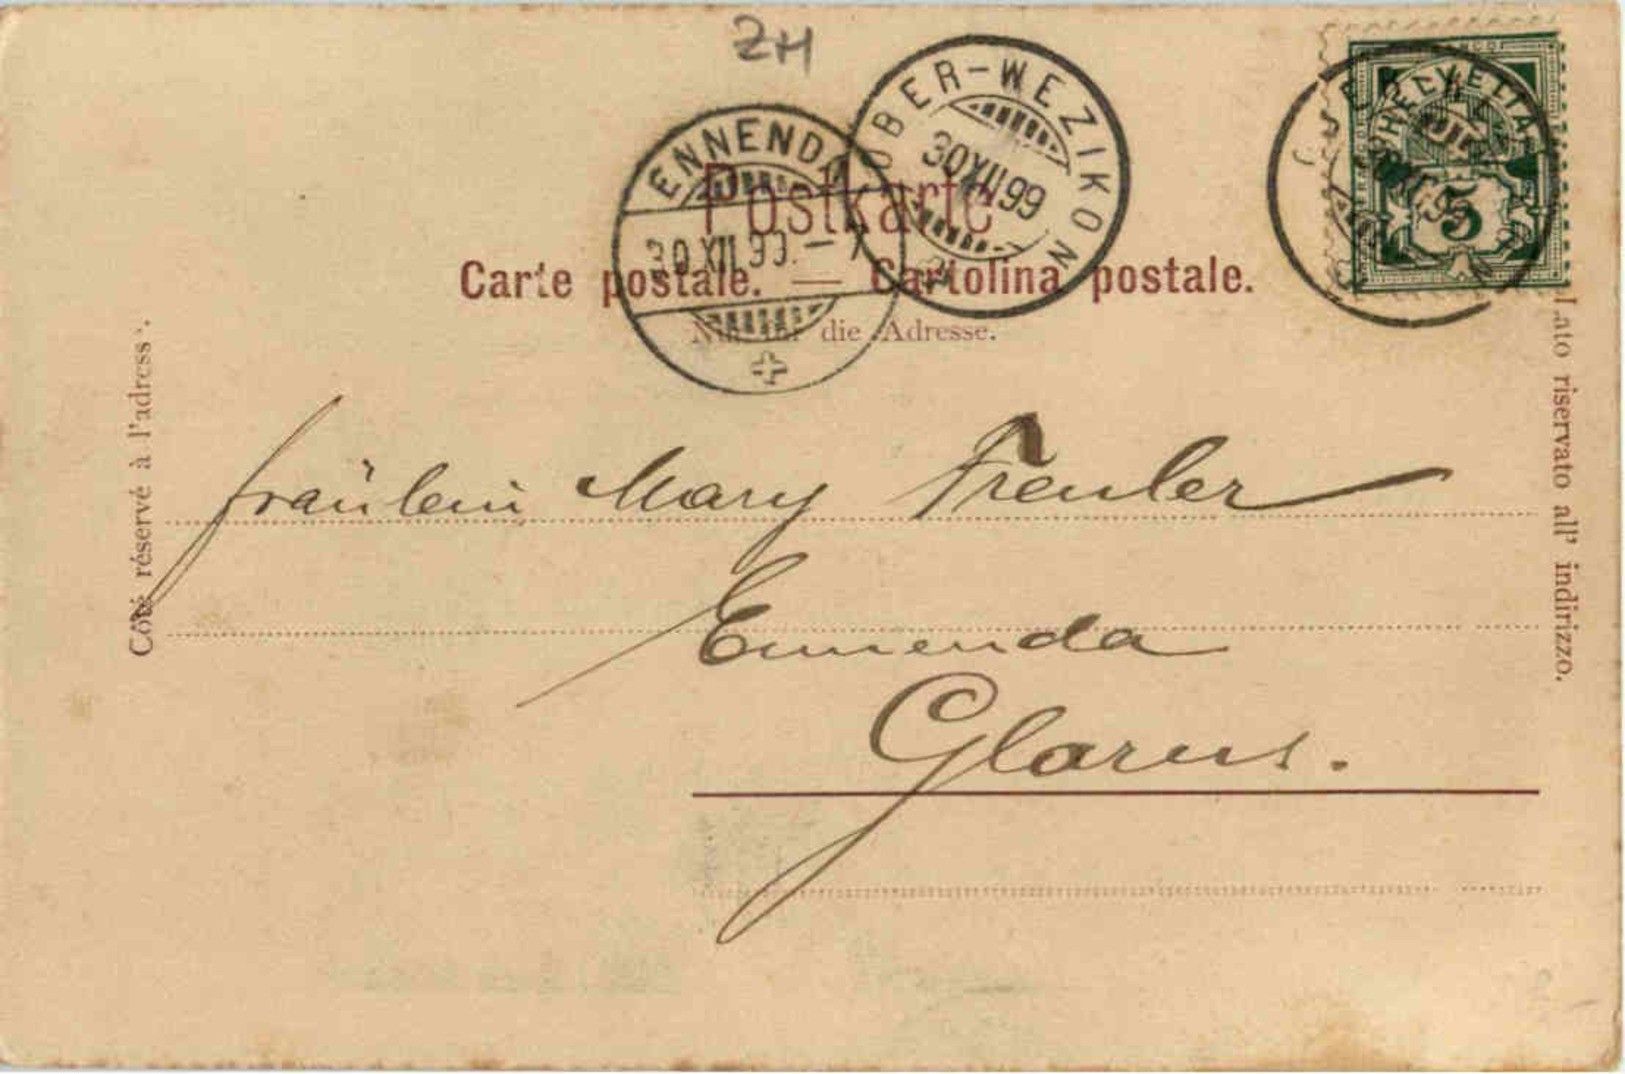 ZH
OBER-WEZIKON
30 XII 99
HELVETIA
FRANCO
5
ENNENDA
30.XII.99.-7
Postkarte
Carte postale. — Cartolina postale.
Nur für die Adresse.
Côté réservé à l'adresse.
Lato riservato all' indirizzo.
Fräulein Mary Freuler
Ennenda
Glarus.